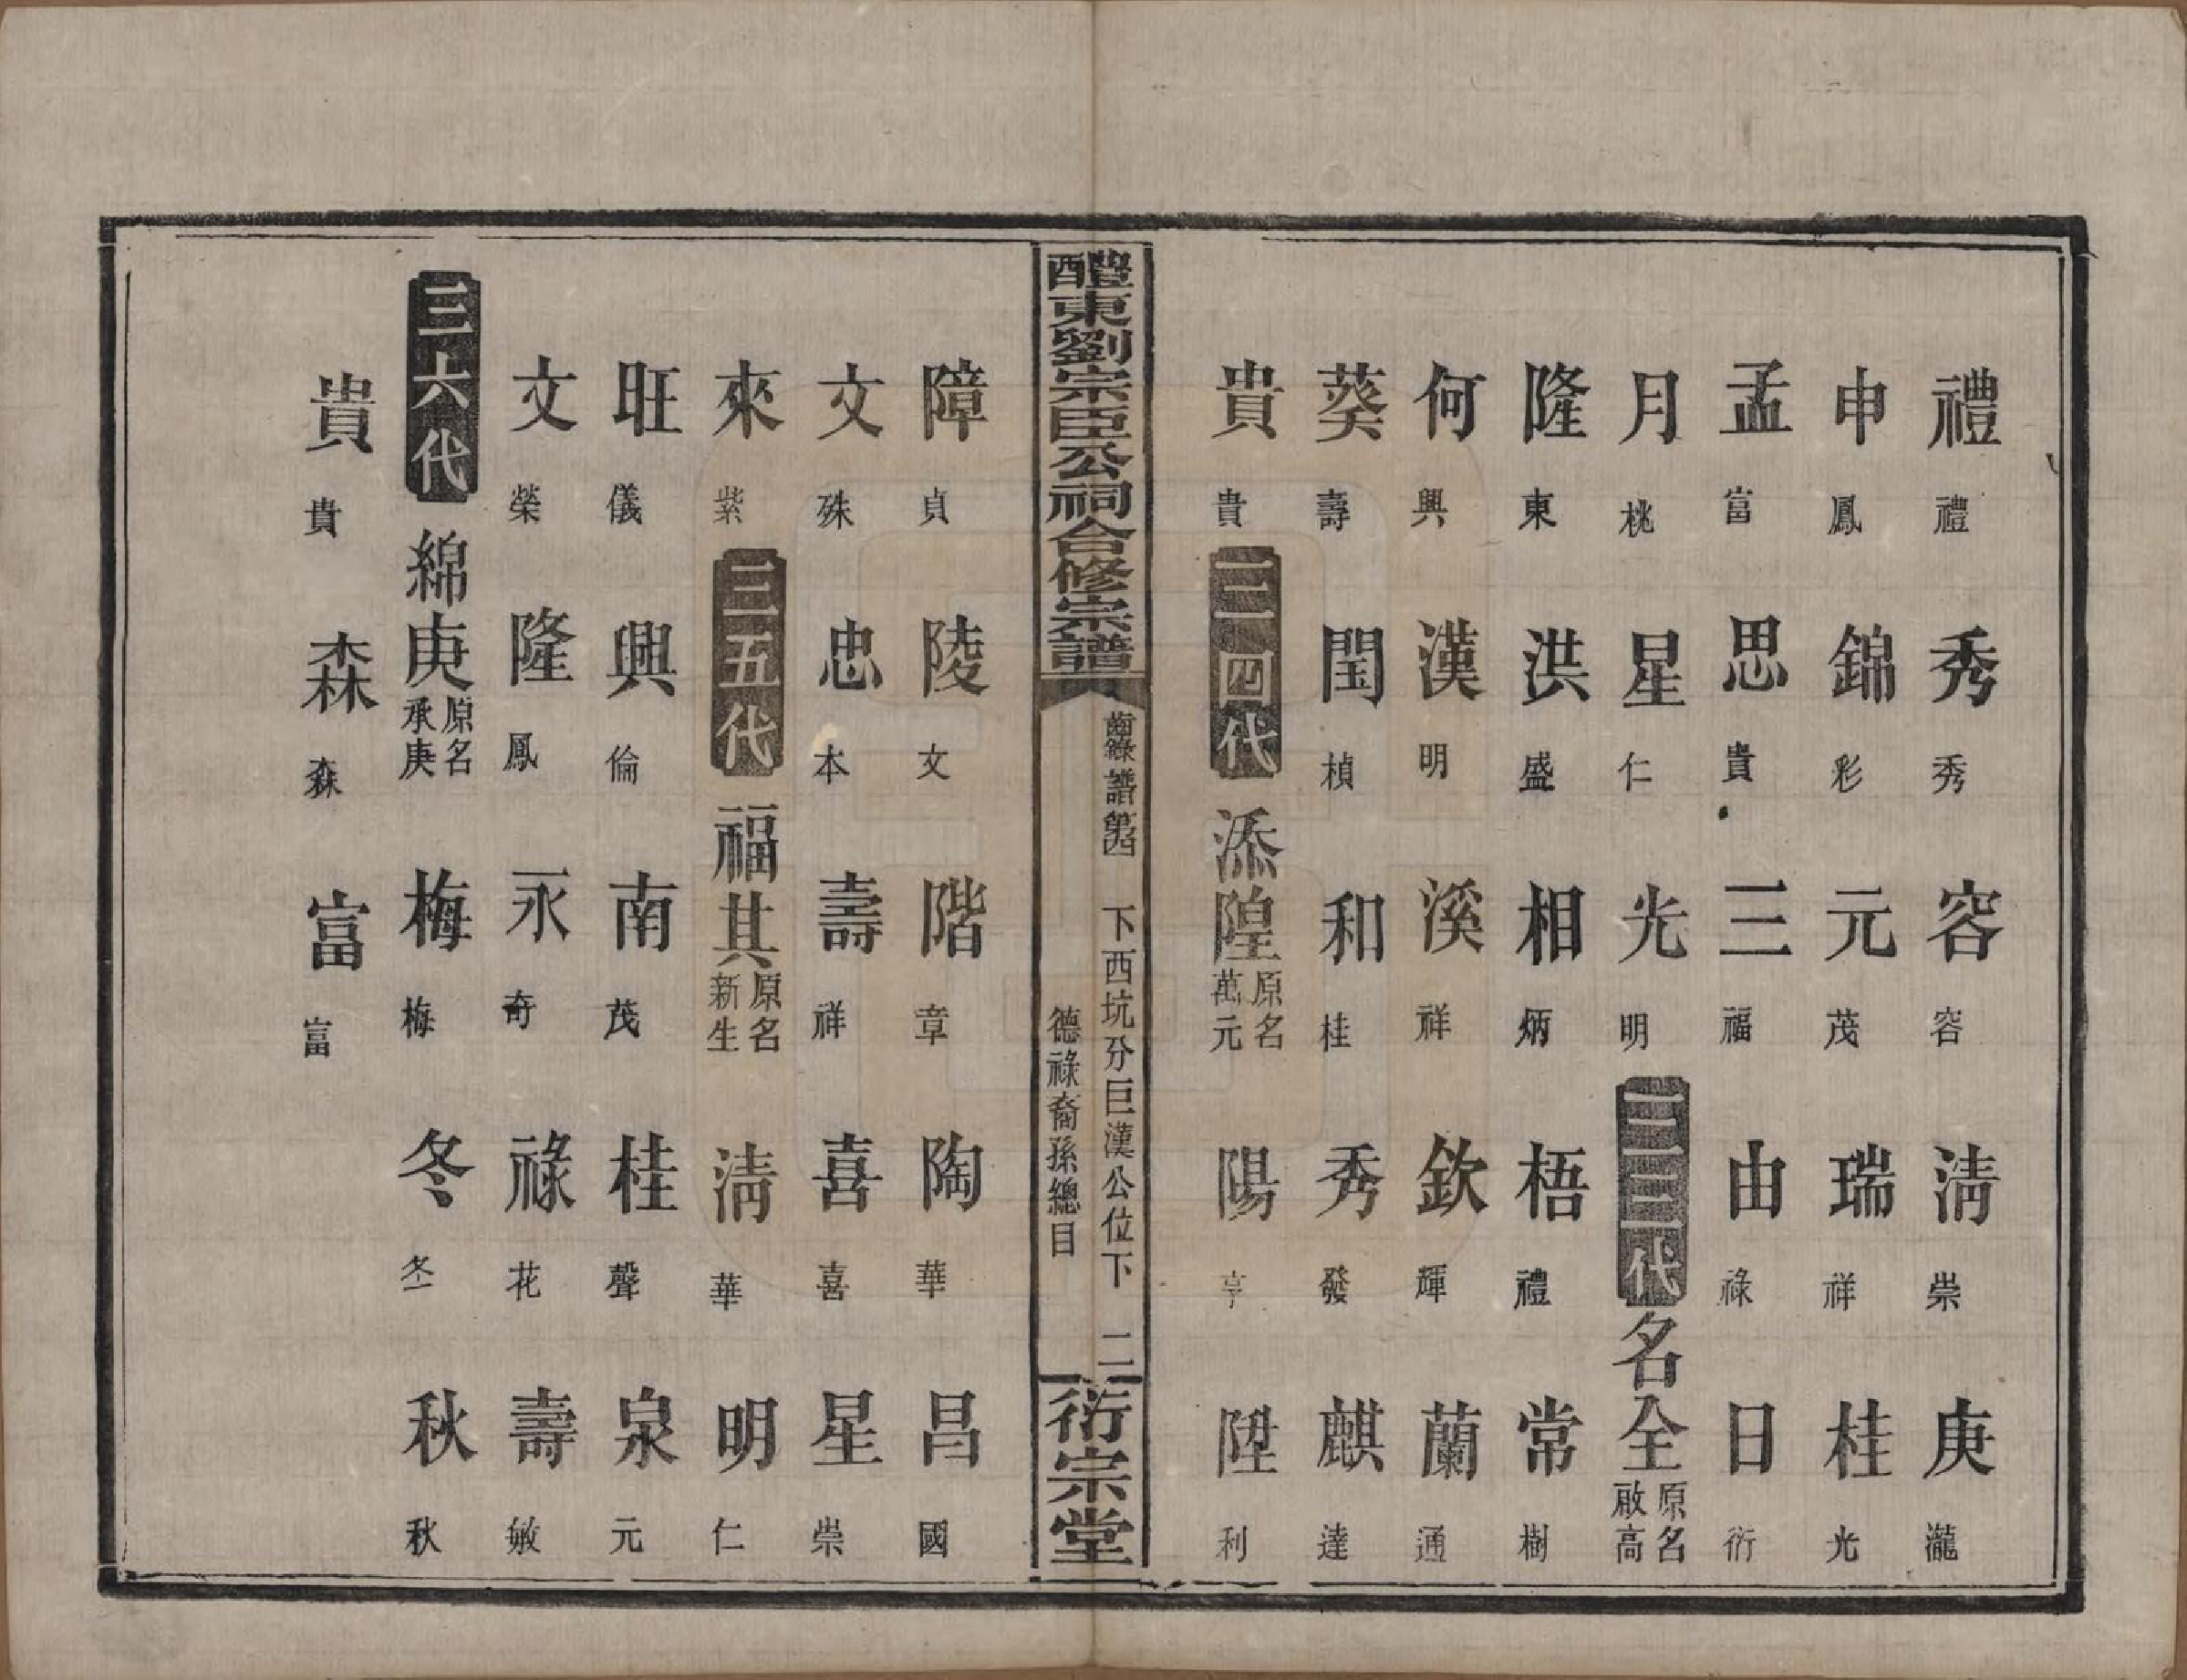 禮 禮 秀 秀 容 容 淸 崇 庚 瀧
申 鳳 錦 彩 元 茂 瑞 祥 桂 光
孟 富 思 貴 三 福 由 祿 日 衍
月 桃 星 仁 光 明 三三代 名全 原名啟高
隆 東 洪 盛 相 炳 梧 禮 常 樹
何 興 漢 明 溪 祥 欽 輝 蘭 通
葵 壽 閏 楨 和 桂 秀 發 麒 達
貴 貴 三四代 添隍 原名萬元 陽 亨 陞 利
醴東劉宗臣公祠合修宗譜
齒錄譜第四 下西坑分巨漢公位下 二
德祿裔孫總目
衍宗堂
障 貞 陵 文 階 章 陶 華 昌 國
文 殊 忠 本 壽 祥 喜 喜 星 崇
來 紫 三五代 福其 原名新生 淸 華 明 仁
旺 儀 興 倫 南 茂 桂 聲 泉 元
文 榮 隆 鳳 永 奇 祿 花 壽 敏
三六代 綿庚 原名承庚 梅 梅 冬 冬 秋 秋
貴 貴 森 森 富 富